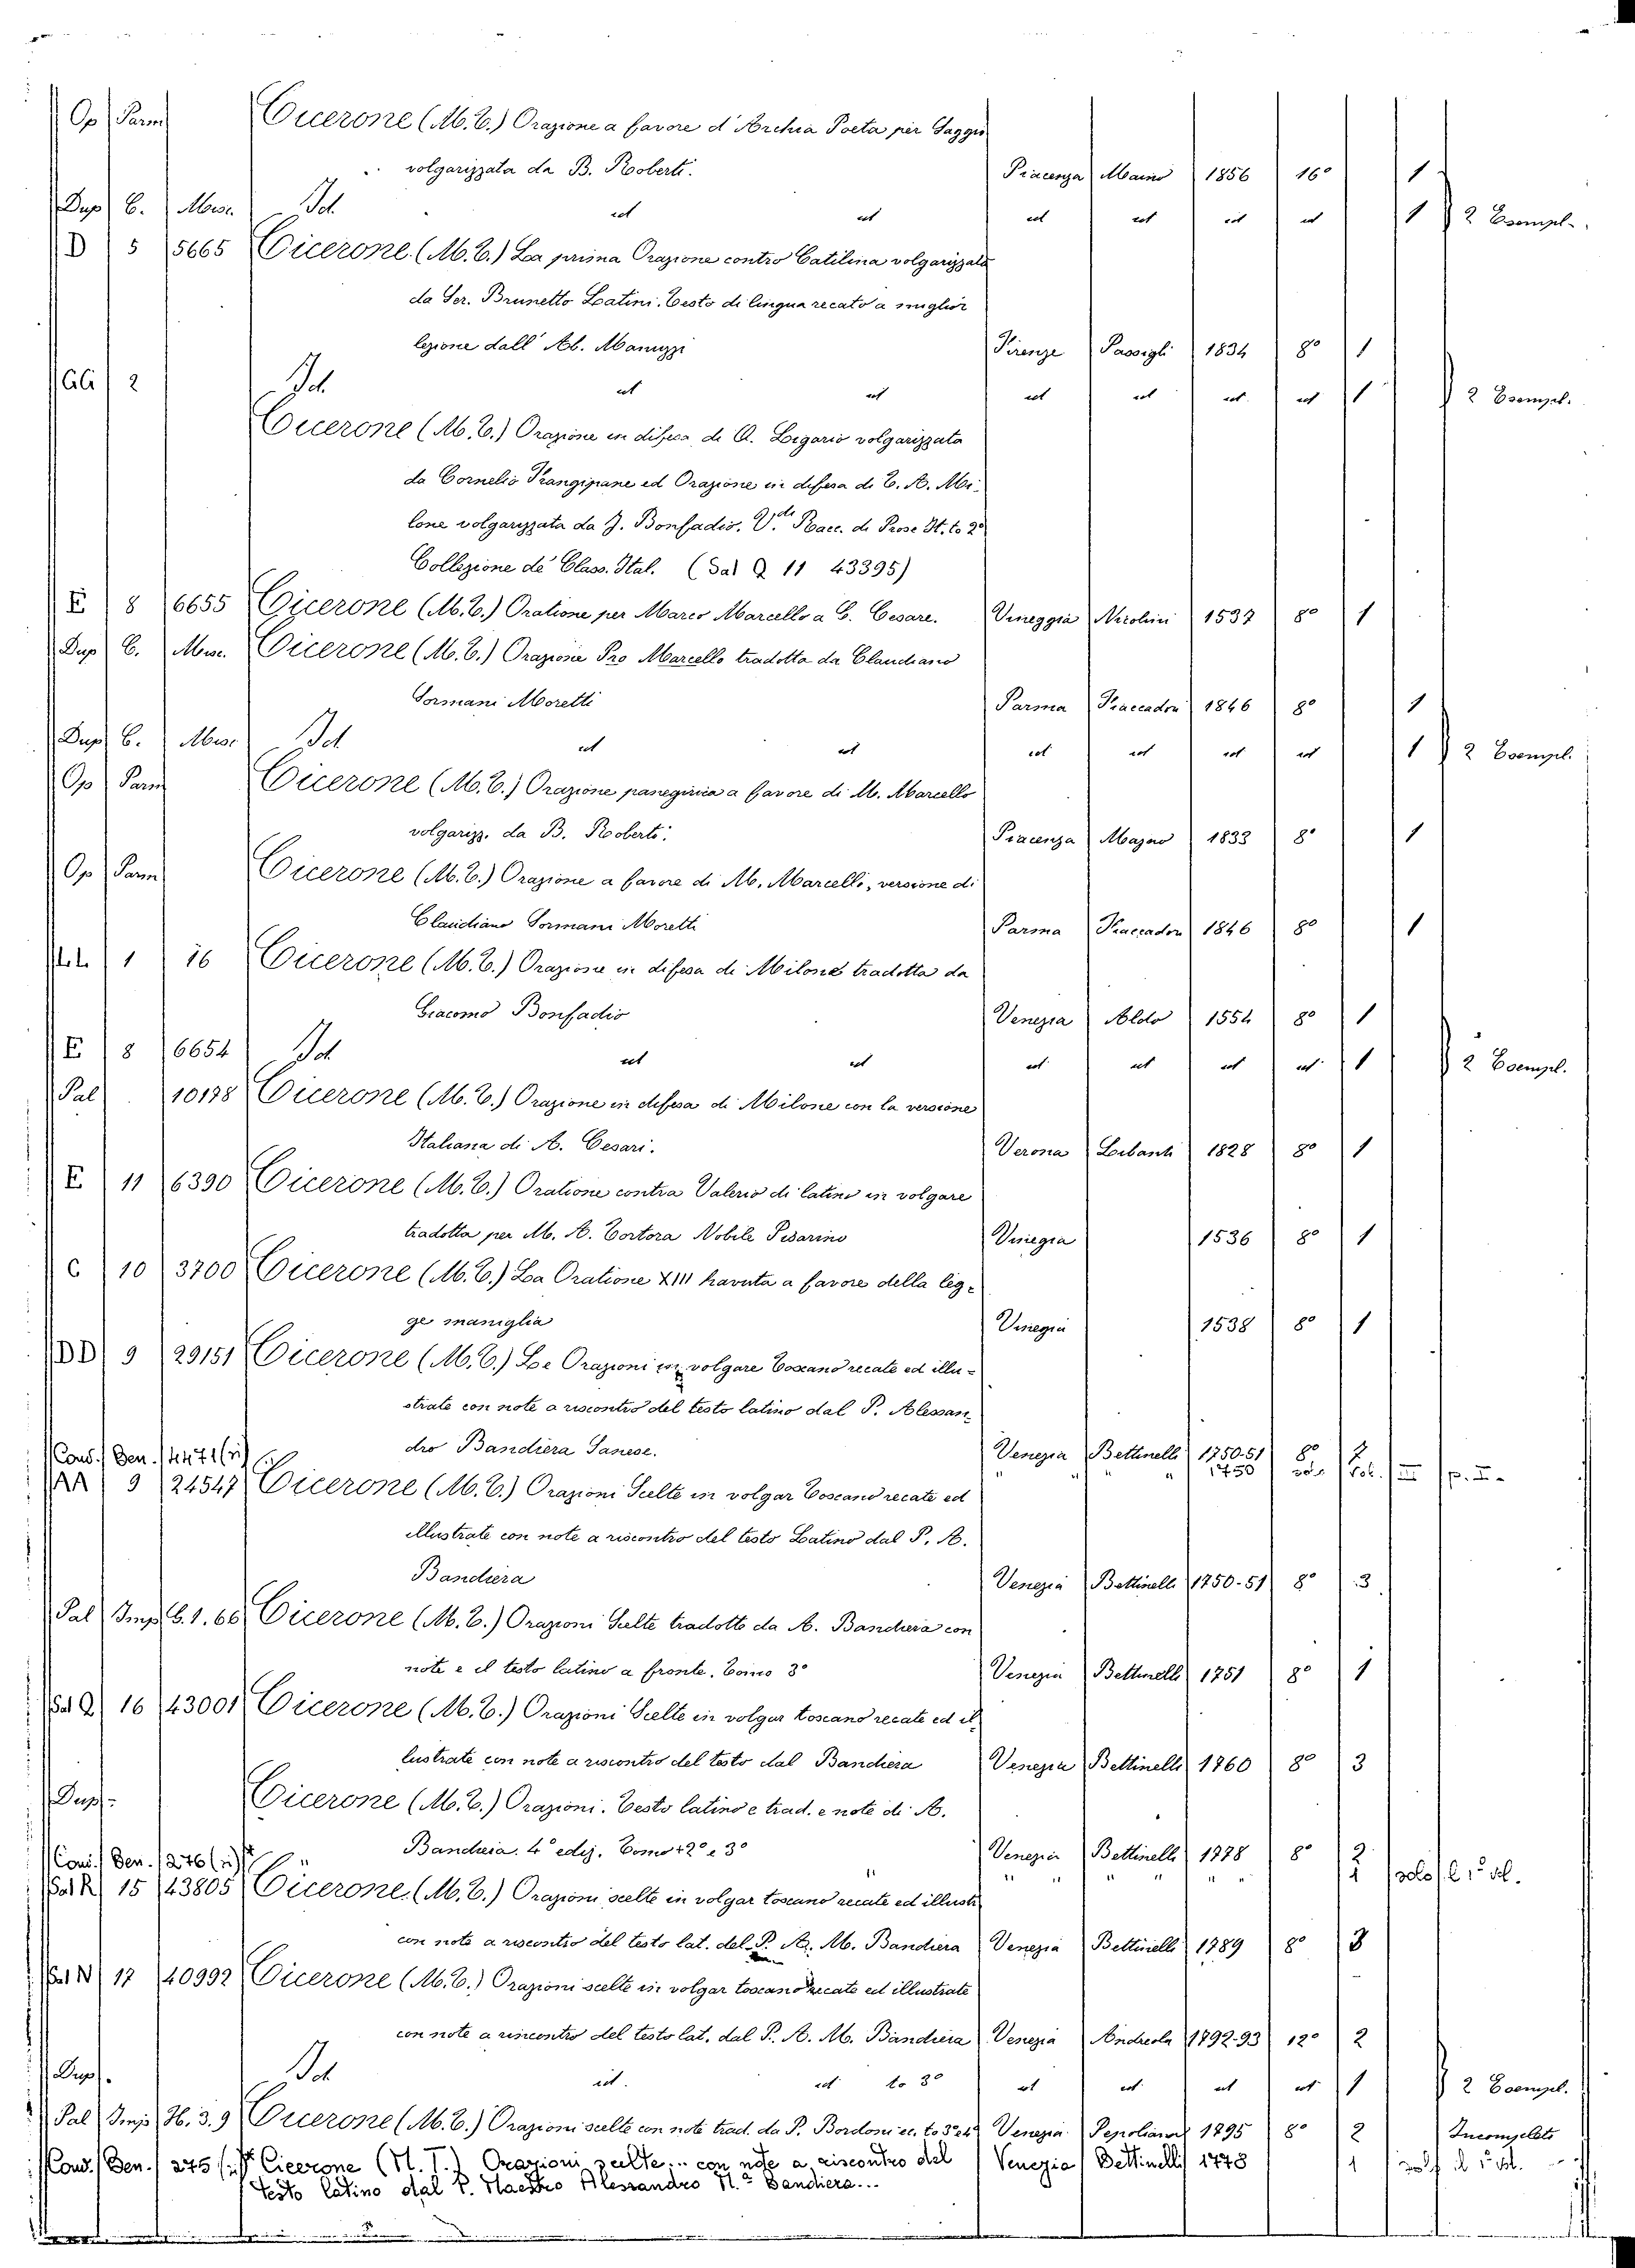 Op Parm Cicerone (M. T.) Orazione a favore d'Archia Poeta per Saggio
volgarizzata da B. Roberti. Piacenza Maino 1856 16° 1
Dup C. Misc. Id. id id id id id id 1 2 Esempl.
D 5 5665 Cicerone (M. T.) La prima Orazione contro Catilina volgarizzata
da Ser. Brunetto Latini. Testo di lingua recato a miglior
lezione dall' Ab. Manuzzi Firenze Passigli 1834 8° 1
2 Id. id id id id id id 1 2 Esempl.
Cicerone (M. T.) Orazione in difesa di Q. Ligario volgarizzata
da Cornelio Frangipane ed Orazione in difesa di T. A. Mi-
lone volgarizzata da J. Bonfadio. V.di Racc. di Prose It. to 2°
Collezione de' Class. Ital. (Sal Q 11 43395)
E 8 6655 Cicerone (M. T.) Oratione per Marco Marcello a C. Cesare. Vineggia Nicolini 1537 8° 1
Dup C. Misc. Cicerone (M. T.) Orazione Pro Marcello tradotta da Claudiano
Sormani Moretti Parma Fiaccadori 1846 8° 1
Dup C. Misc Id. id id id id id id 1 2 Esempl.
Op Parm Cicerone (M. T.) Orazione panegirica a favore di M. Marcello
volgarizz. da B. Roberti. Piacenza Majno 1833 8° 1
Op Parm Cicerone (M. T.) Orazione a favore di M. Marcello, versione di
Claudiano Sormani Moretti Parma Fiaccadori 1846 8° 1
1 16 Cicerone (M. T.) Orazione in difesa di Milone tradotta da
Giacomo Bonfadio Venezia Aldo 1554 8° 1
E 8 6654 Id. id id id id id id 1 2 Esempl.
Pal 10178 Cicerone (M. T.) Orazione in difesa di Milone con la versione
Italiana di A. Cesari. Verona Libanti 1828 8° 1
E 11 6390 Cicerone (M. T.) Oratione contra Valerio di latino in volgare
tradotta per M. A. Tortora Nobile Pisarino Vinegia 1536 8° 1
C 10 3700 Cicerone (M. T.) La Oratione XIII havuta a favore della leg-
ge maniglia Vinegia 1538 8° 1
DD 9 29151 Cicerone (M. T.) Le Orazioni in volgare Toscano recate ed illu-
strate con note a riscontro del testo latino dal P. Alessan-
dro Bandiera Sanese. Venezia Bettinelli 1750-51 8° 2
Cons. Gen. 4471 (r) " " " 1750 Vol. III p. I.
AA 9 24547 Cicerone (M. T.) Orazioni Scelte in volgar Toscano recate ed
illustrate con note a riscontro del testo Latino dal P. A.
Bandiera Venezia Bettinelli 1750-51 8° 3
Pal Imp G. 1. 66 Cicerone (M. T.) Orazioni Scelte tradotte da A. Bandiera con
note e il testo latino a fronte. Tomo 3° Venezia Bettinelli 1751 8° 1
Sal Q 16 43001 Cicerone (M. T.) Orazioni Scelte in volgar toscano recate ed il-
lustrate con note a riscontro del testo dal Bandiera Venezia Bettinelli 1760 8° 3
Dup. Cicerone (M. T.) Orazioni. Testo latino e trad. e note di A.
Bandiera. 4° ediz. Tomo 2° e 3° Venezia Bettinelli 1778 8° 2
Cons. Gen. 276 (r) " " " " " " " 1 solo il 1° vol.
Sal R 15 43805 Cicerone. (M. T.) Orazioni scelte in volgar toscano recate ed illustr.
con note a riscontro del testo lat. del P. A. M. Bandiera Venezia Bettinelli 1789 8° 3
Sal N 17 40992 Cicerone (M. T.) Orazioni scelte in volgar toscano recate ed illustrate
con note a rincontro del testo lat. dal P. A. M. Bandiera Venezia Andreola 1792-93 12° 2
Dup. Id. id. id to 3° id id id id 1 2 Esempl.
Pal Imp H. 3. 9 Cicerone (M. T.) Orazioni scelte con note trad. da P. Bordoni ec. to 3° e 4° Venezia Pepoliana 1795 8° 2 Incompleto
Cons. Gen. 275 Cicerone (M. T.) Orazioni scelte... con note a riscontro del Venezia Bettinelli 1778 1
testo latino dal P. Maestro Alessandro M.a Bandiera...